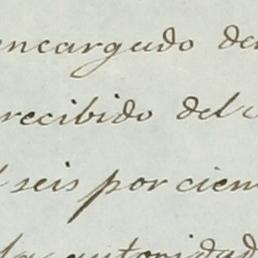 encargado de
recibido del
seis por cien
la autoridad